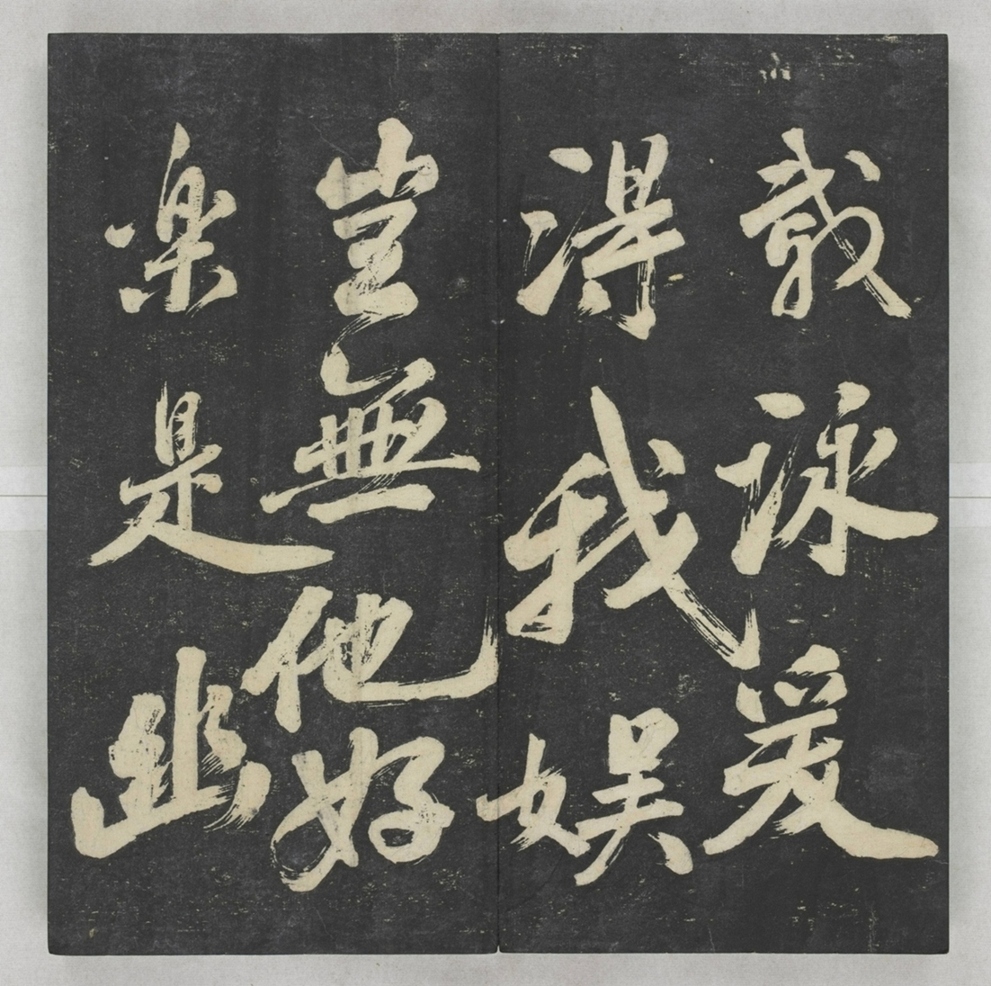 載詠爰
得我娯
豈無他好
樂是幽